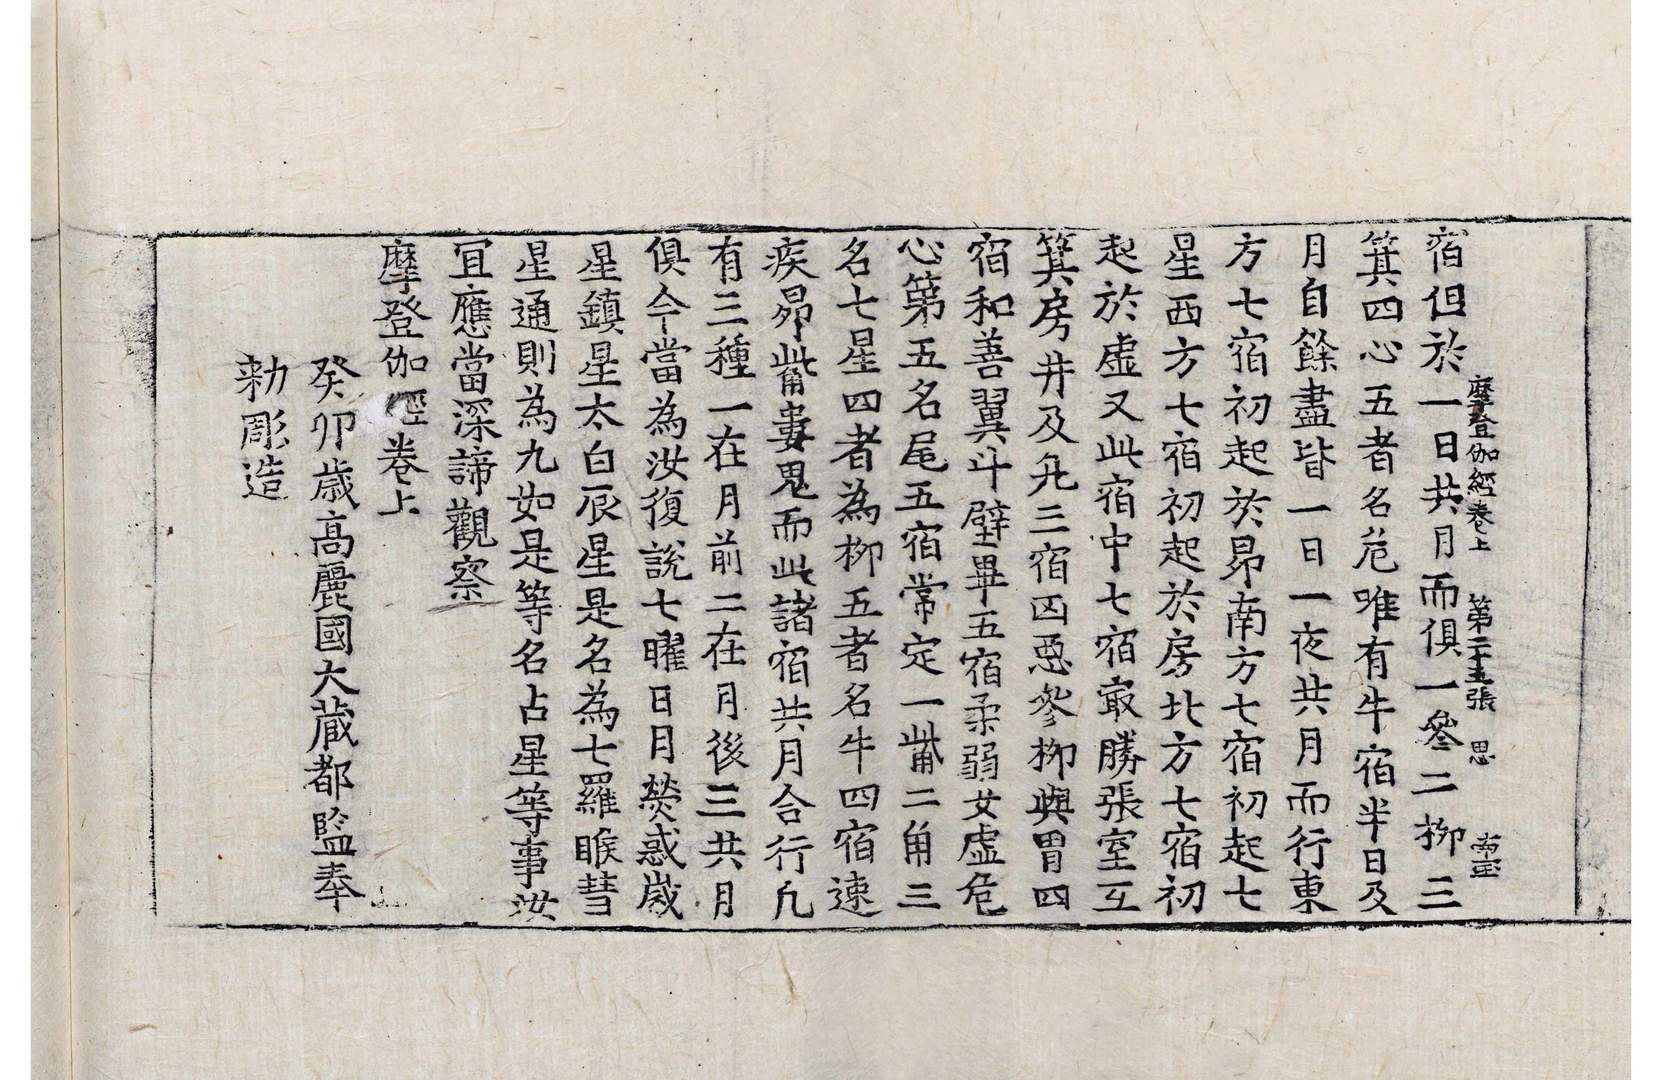 摩登伽經卷上 第二十五張 思
宿但於一日共月而俱一參二栁三
箕四心五者名危唯有牛宿半日及
月自餘盡皆一日一夜共月而行東
方七宿初起於昴南方七宿初起七
星西方七宿初起於房北方七宿初
起於虛又此宿中七宿㝡勝張室互
箕房井及㐪三宿凶惡參栁與胃四
宿和善翼斗壁畢五宿柔弱女虛危
心第五名尾五宿常定一觜二角三
名七星四者為栁五者名牛四宿速
疾昴觜婁鬼而此諸宿共月合行凡
有三種一在月前二在月後三共月
俱今當為汝復說七曜日月熒惑嵗
星鎮星太白辰星是名為七羅睺彗
星通則為九如是等名占星等事汝
冝應當深諦觀察
摩登伽經卷上
癸卯歳高麗國大蔵都監奉
勑彫造